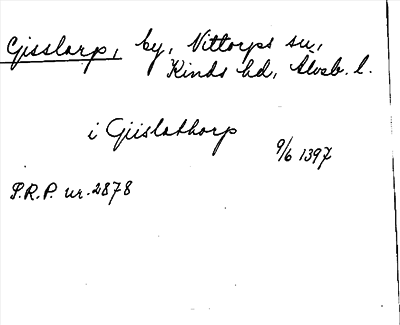 Gisslarp, by, Vittarps sn,
Kinds hd, Älvsb. l.
i Giislathorp
9/6 1397
S.R.P. nr. 2878